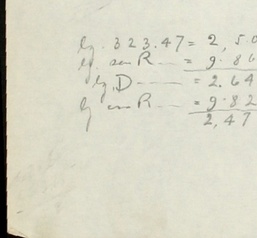 lg. 323.47 = 2,50
lg. sen R — = 9.86
lg D —— = 2.64
lg cos R — = 9.82
2,47